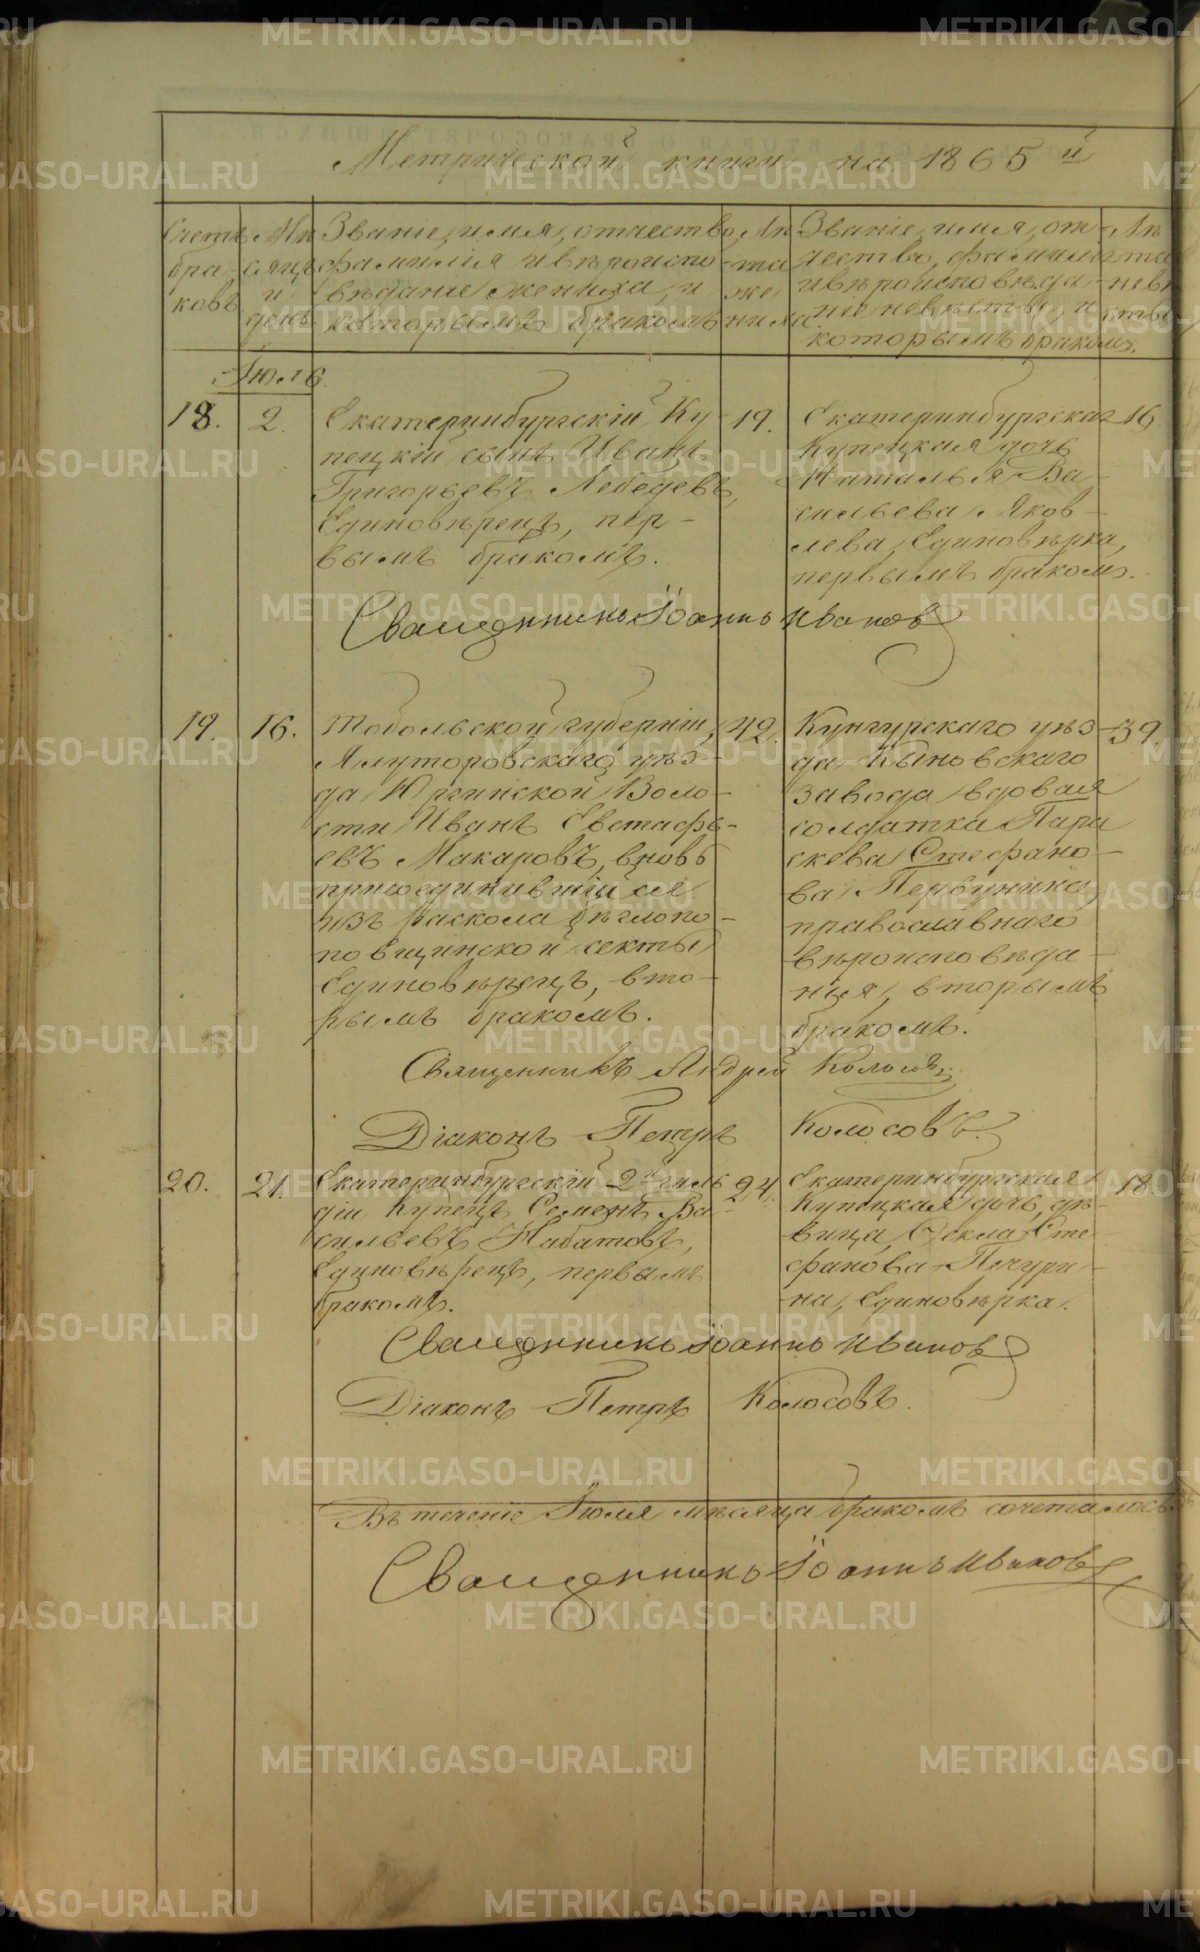 Метрической книги на 1865 й
Счетъ бра ковъ
Мѣ сяцъ и день
Званіе, имя, отчество,
фамилія и вѣроиспо
вѣданіе жениха, и
которымъ бракомъ
Лѣ та же ниха
Званіе, имя, от-
чество, фамилія
и вѣроисповѣда
ніе невѣсты, и
которымъ бракомъ.
Лѣ та неве сты
Іюль
18.
2.
Екатеринбургскій Ку-
пецкій сынъ Иванъ
Григорьевъ Лебедевъ,
Единовѣрецъ, пер-
вымъ бракомъ.
19.
Екатеринбургская
Купецкая дочь
Наталья Ва-
сильева Яков-
лева, Единовѣрка,
первымъ бракомъ.
16
Священникъ Іоаннъ Ивановъ
19.
16.
Тобольской губерніи,
Ялуторовскаго уѣз-
да Юргинской Воло-
сти Иванъ Евстафь-
евъ Макаровъ, вновь
присоединившійся
изъ раскола бѣглопо-
повщинской секты
Единовѣрецъ, вто-
рымъ бракомъ.
42.
Кунгурскаго уѣз-
да Кыновскаго
завода вдовая
солдатка Пара
скева Стефано-
ва Первунина,
православнаго
вѣроисповѣда-
нія, вторымъ
бракомъ.
39.
Священникъ Андрей Колосовъ
Діаконъ Петръ Колосовъ.
20.
21.
Екатеринбургскій 2й гиль
діи Купецъ Семенъ Ва-
сильевъ Набатовъ,
Единовѣрецъ, первымъ
бракомъ.
24.
Екатеринбургская
Купецкая дочь, дѣ-
вица, Ѳекла Сте-
фанова Печури-
на, Единовѣрка.
18.
Священникъ Іоаннъ Ивановъ
Діаконъ Петръ Колосовъ.
Въ теченіе Іюля мѣсяца бракомъ сочеталось
Священникъ Іоаннъ Ивановъ